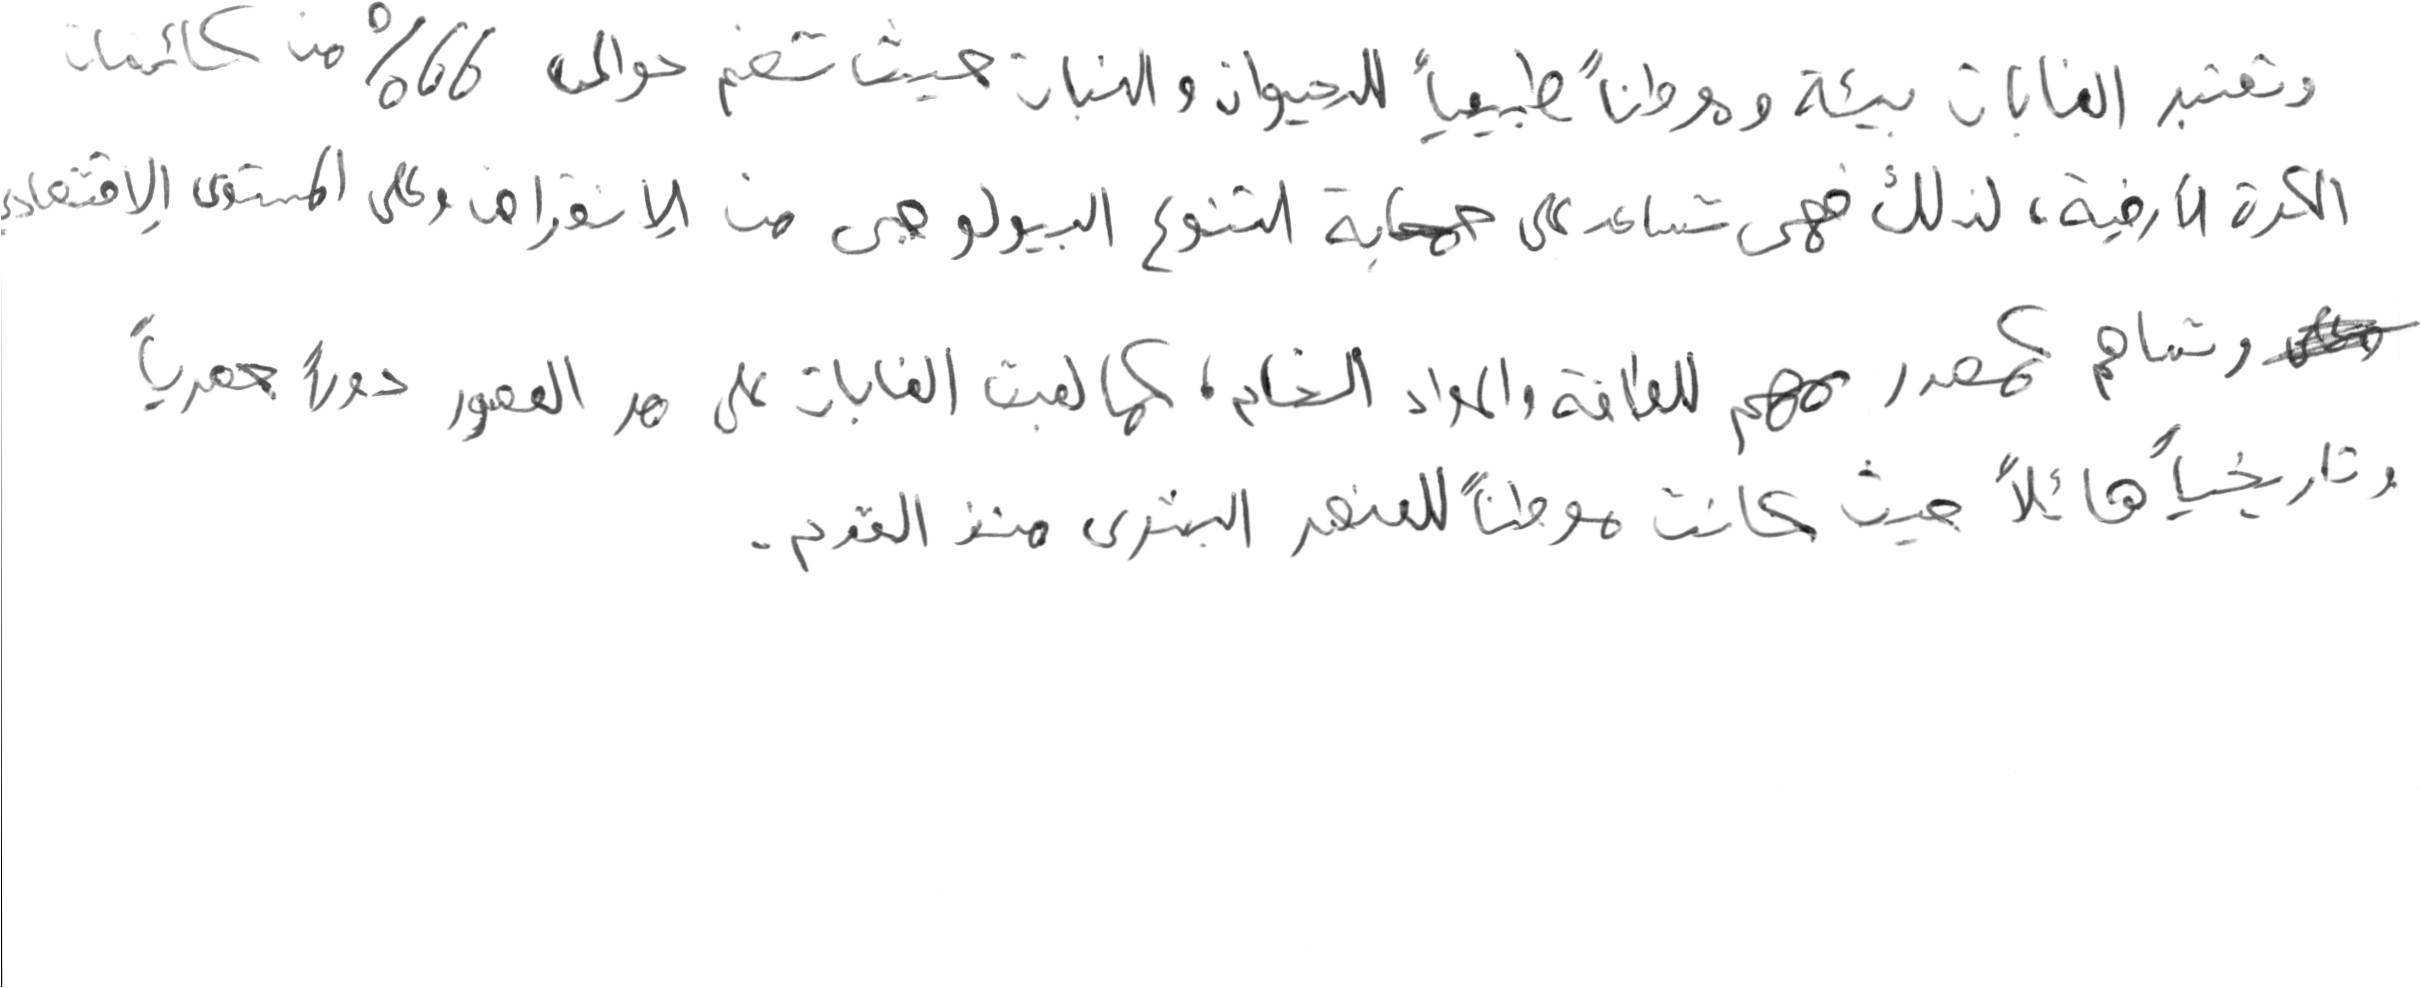 وتعتبر الغابات بيئة وموطناً طبيعياً للحيوان والنبات حيث تضم حوالى 66% من كائنات
الكرة الأرضية، لذلك فهى تساعد على حماية التنوع البيولوجى من الإنقراض وعلى المستوى الإقتصادي
وتساهم كمصدر مهم للطاقة والمواد الخام، كما لعبت الغابات على مر العصور دوراً جغرياً
وتاريخياً هائلاً حيث كانت موطناً للعنصر البشرى منذ القدم.